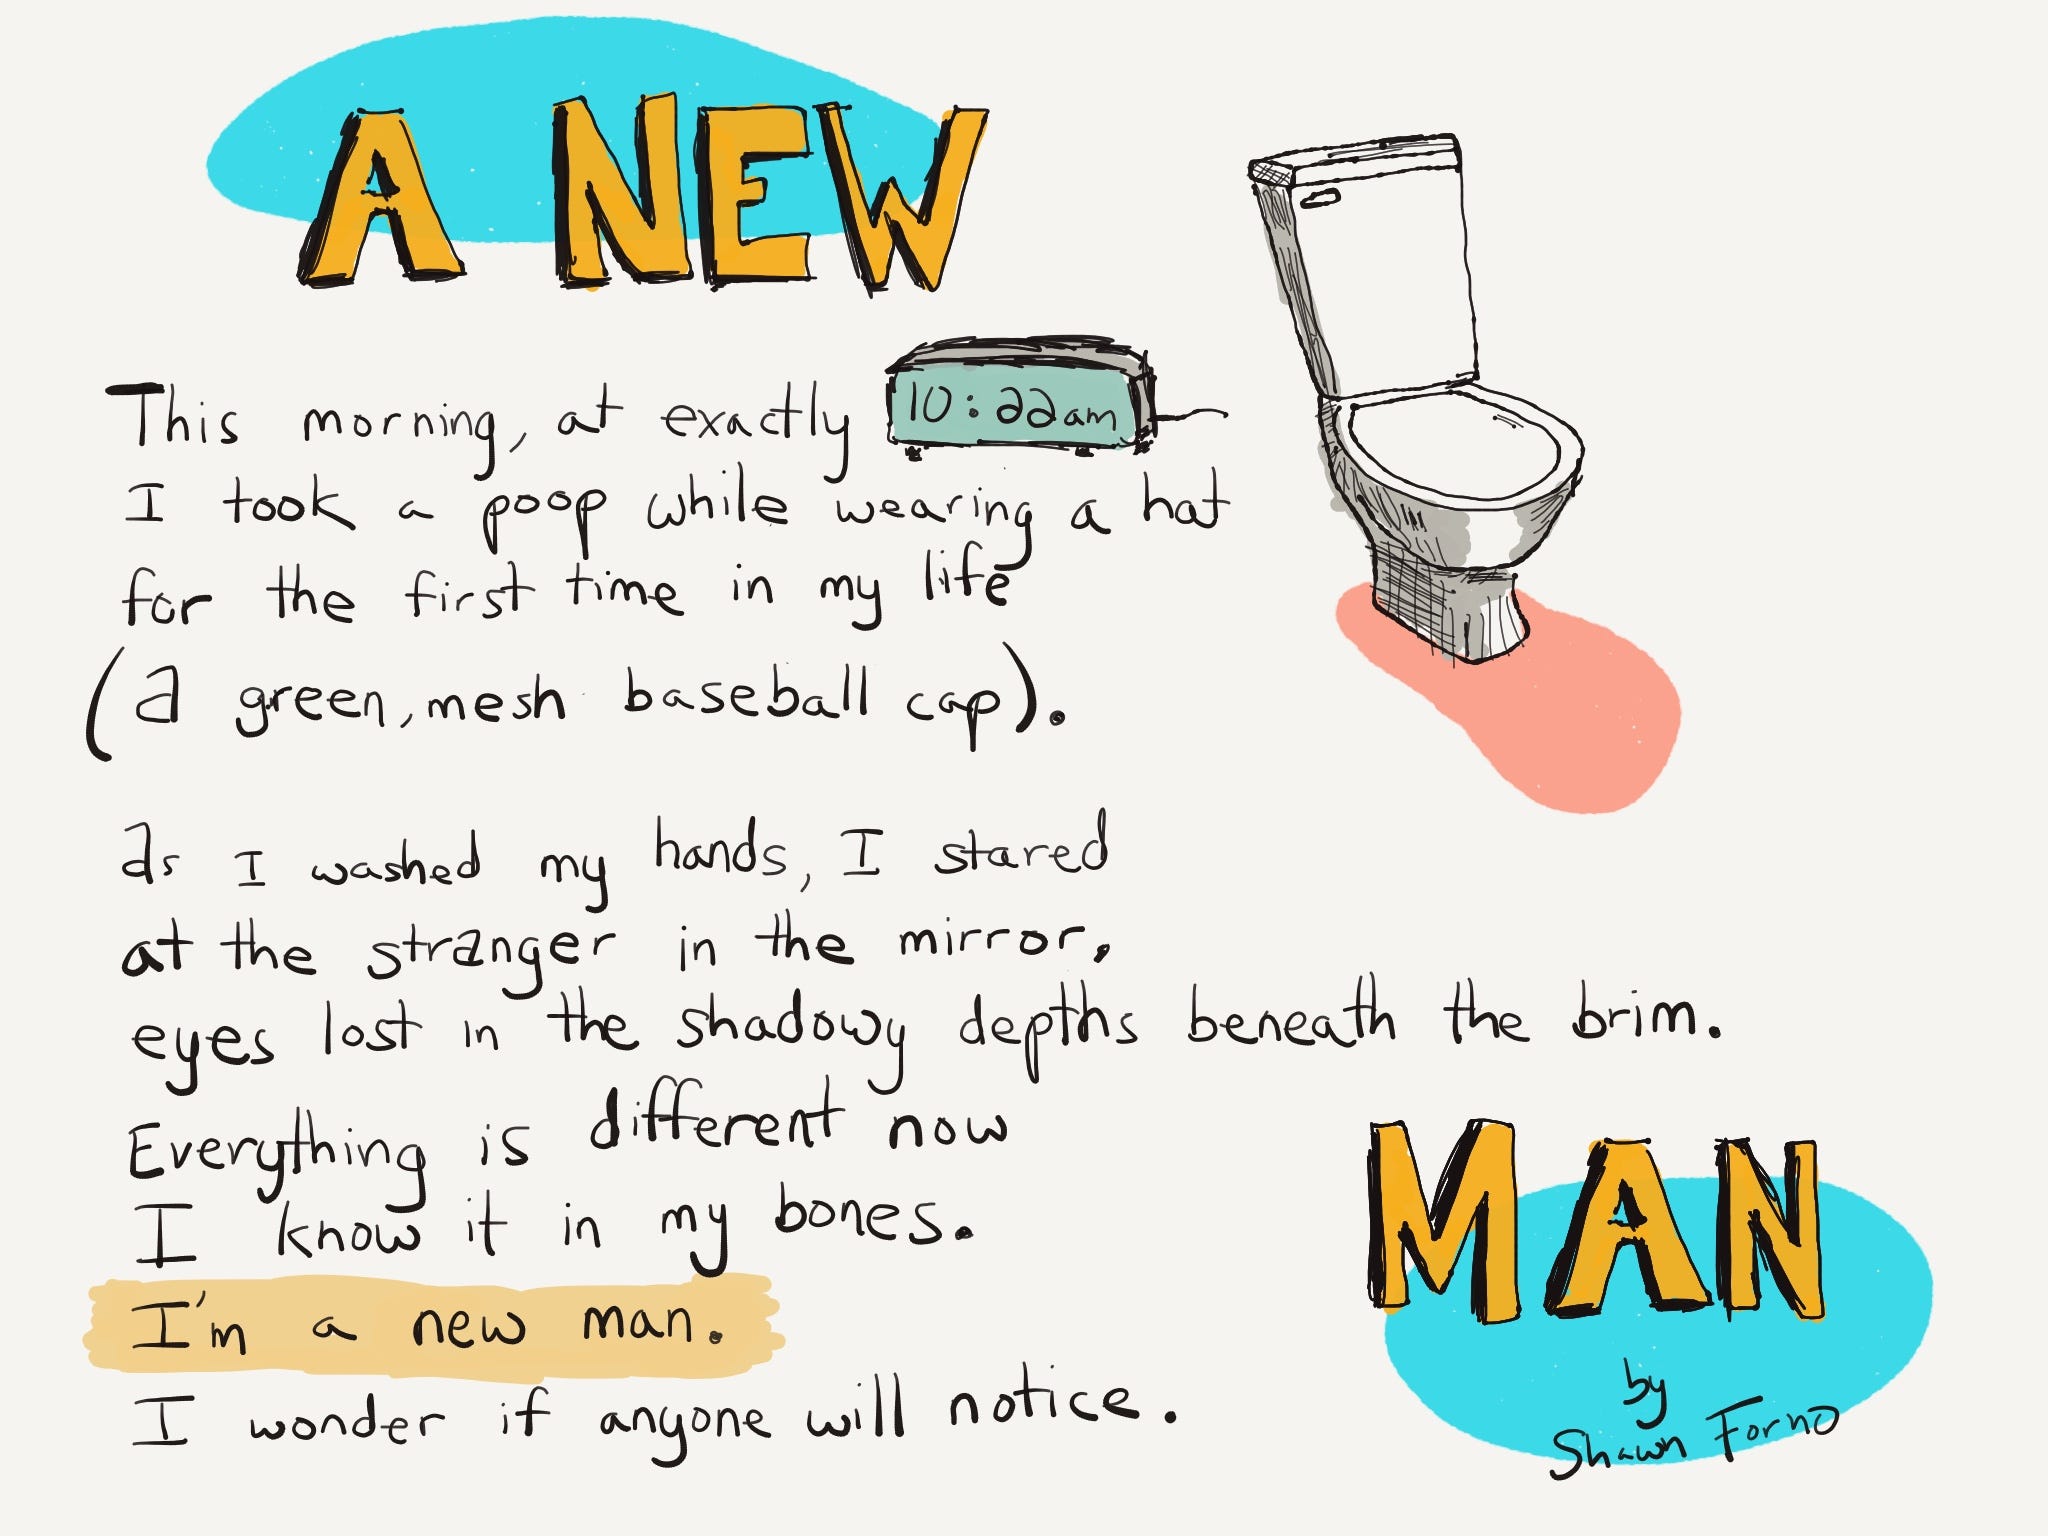 A NEW
This morning, at exactly 10:22am
I took a poop while wearing a hat
for the first time in my life
(a green, mesh baseball cap).
as I washed my hands, I stared
at the stranger in the mirror,
eyes lost in the shadowy depths beneath the brim.
Everything is different now
I know it in my bones.
I'm a new man.
I wonder if anyone will notice.
MAN
by
Shawn Forno